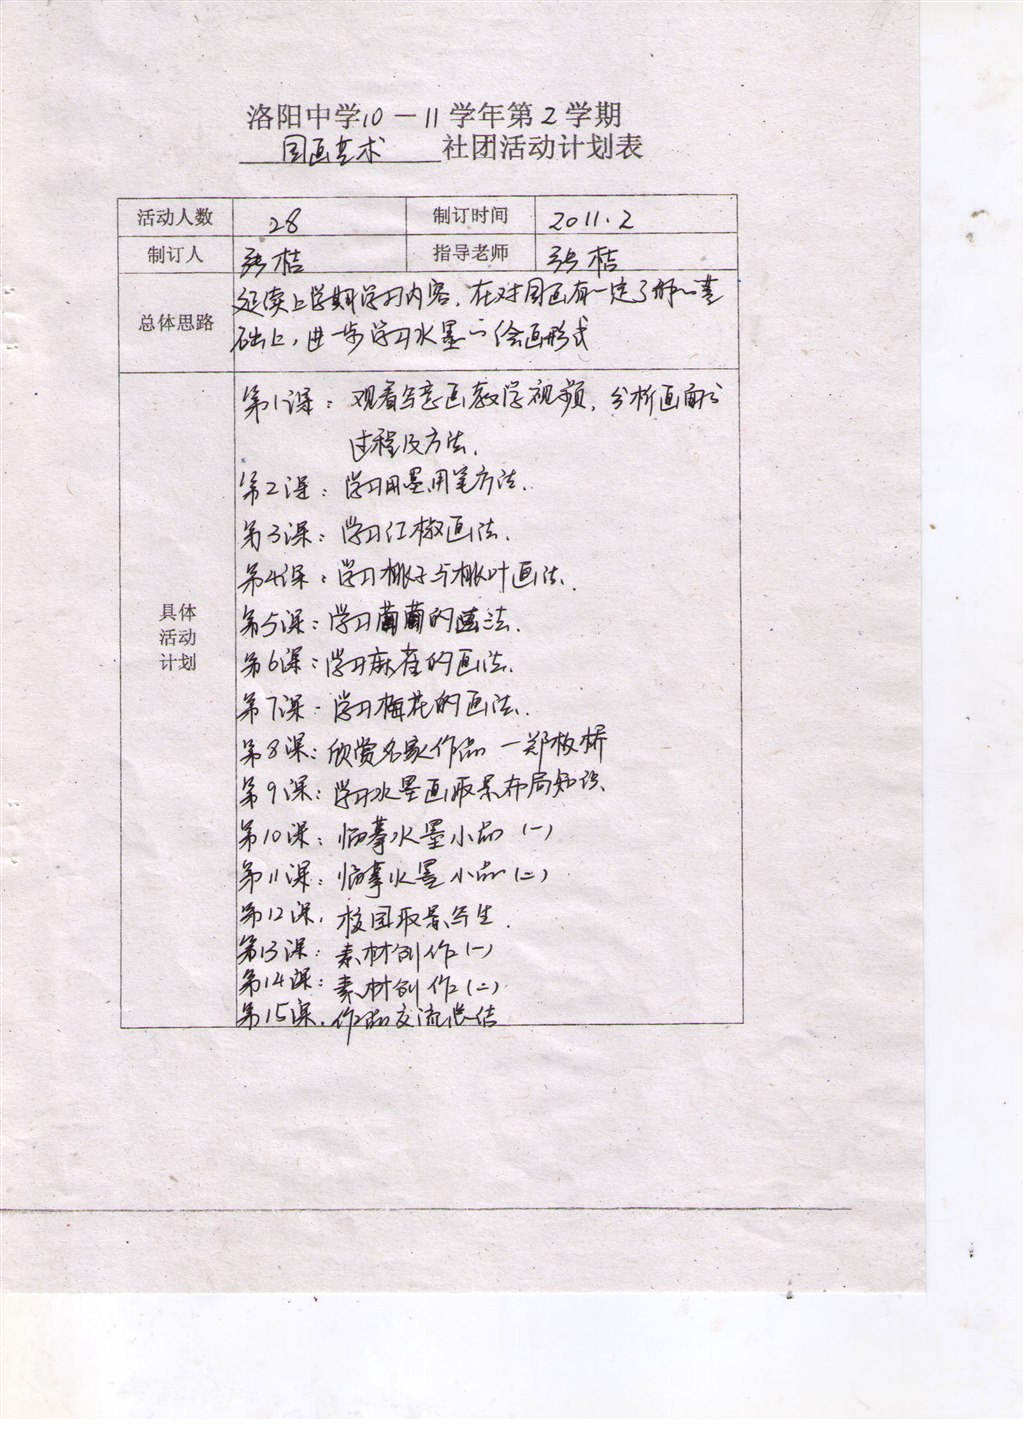 洛阳中学10－11学年第2学期
国画艺术 社团活动计划表
活动人数 28 制订时间 2011.2
制订人 张桔 指导老师 张桔
总体思路
延续上学期学习内容,在对国画有一定了解的基
础上,进一步学习水墨的绘画形式
具体
活动
计划
第1课：观看写意画教学视频,分析画面的
过程及方法.
第2课：学习用墨用笔方法.
第3课：学习红椒画法.
第4课：学习桃子与桃叶画法.
第5课：学习葡萄的画法.
第6课：学习麻雀的画法.
第7课：学习梅花的画法.
第8课：欣赏名家作品—郑板桥
第9课：学习水墨画取景布局知识.
第10课：临摹水墨小品(一)
第11课：临摹水墨小品(二)
第12课.校园取景写生.
第13课：素材创作(一)
第14课：素材创作(二)
第15课.作品交流总结